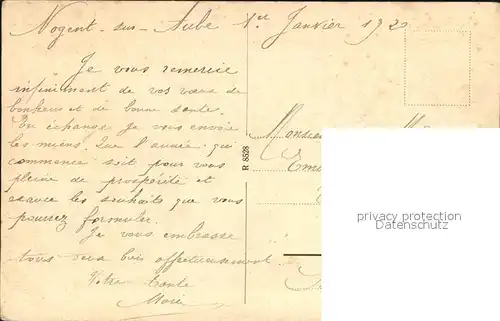 Nogent - sur - Aube 1er Janvier 1920
Je vous remercie
infiniment de vos vœux de
bonheur et de bonne santé.
En échange je vous envoie
les miens. Que l'année qui
commence soit pour vous
pleine de prospérité et
exauce les souhaits que vous
pourrez formuler.
Je vous embrasse
tous deux bien affectueusement.
Votre tante
Marie
R 8528
Monsieur
privacy protection
Datenschutz